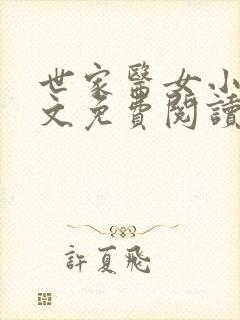 世家醫女小
文免費閱讀
許夏飛